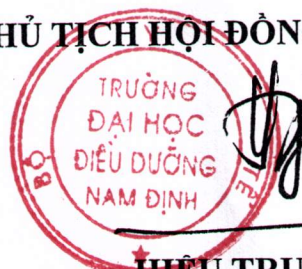 HỦ TỊCH HỘI ĐỒN
TRƯỜNG
ĐẠI HỌC
ĐIỀU DƯỠNG
NAM ĐỊNH
BỘ
TẾ
HIỆU TRU